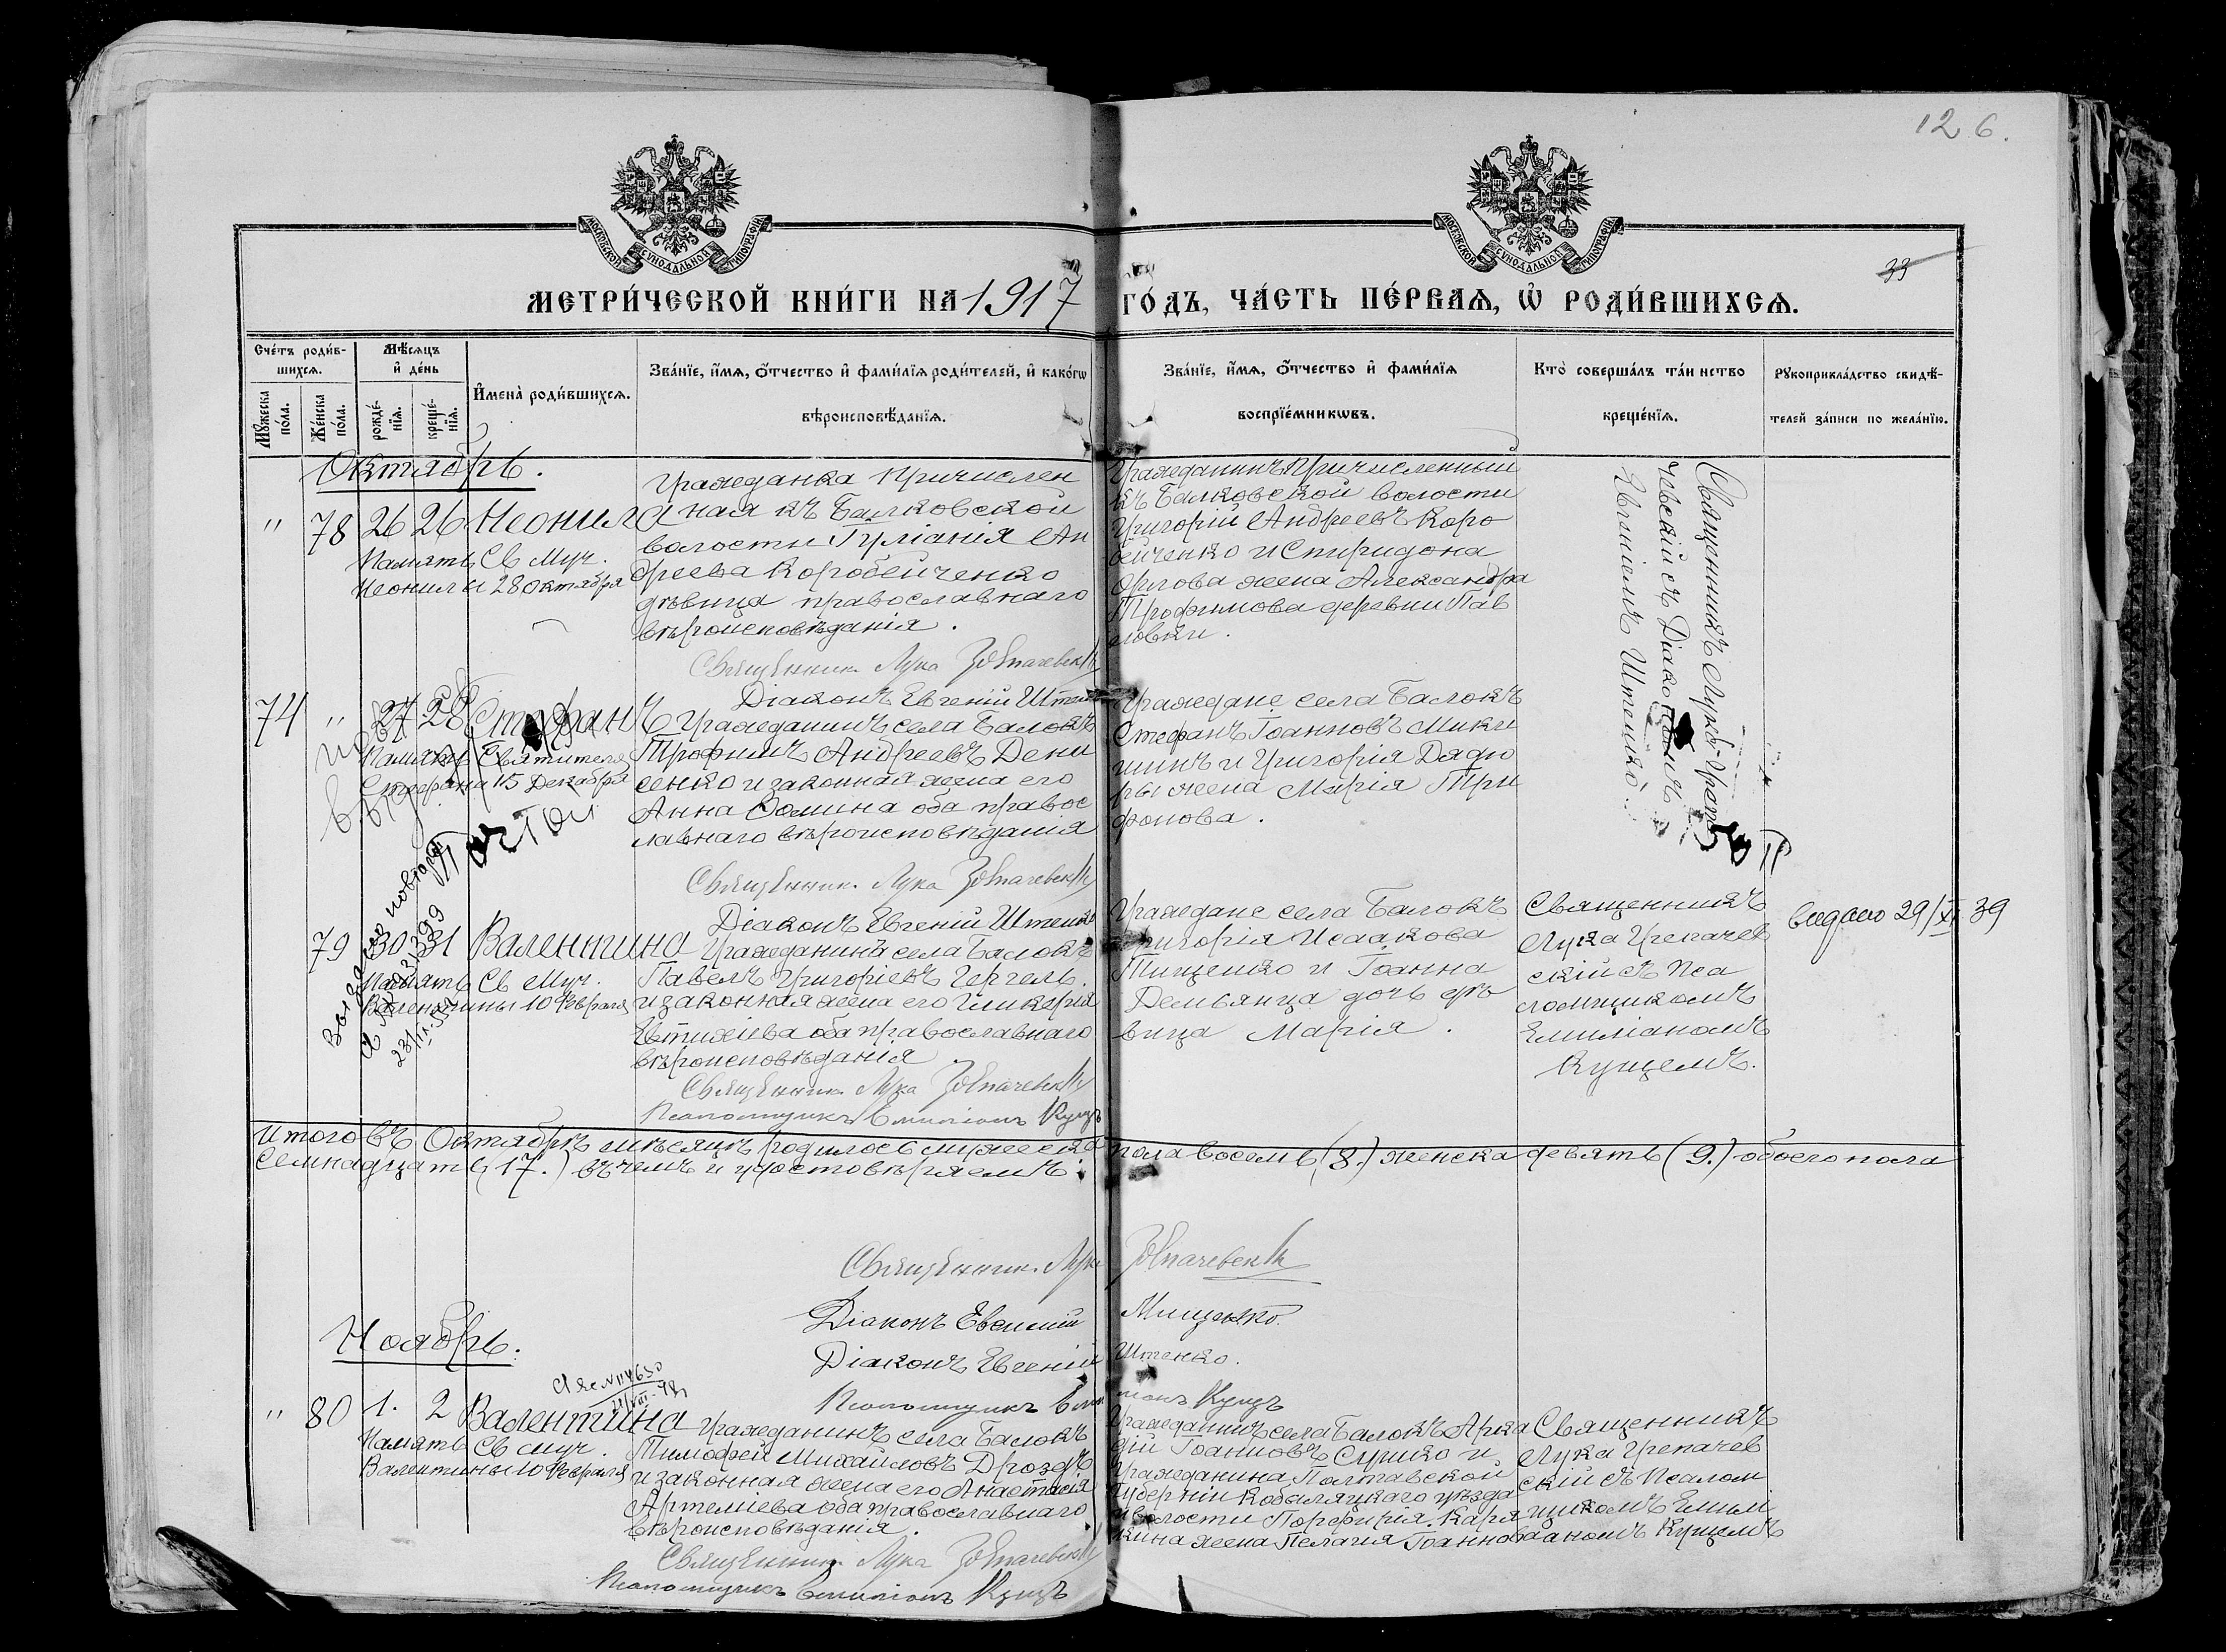 126.
33
МОСКОВСКОЙ СѴНОДАЛЬНОЙ ТИПОГРАФІИ
МОСКОВСКОЙ СѴНОДАЛЬНОЙ ТИПОГРАФІИ
МЕТРИ́ЧЕСКОЙ КНИ́ГИ НА 1917 ГО́ДЪ, ЧА́СТЬ ПЕ́РВАЯ, Ѡ҆ РОДИ́ВШИХСЯ.
Сче́тъ роди́в-
шихся.
Мꙋ́жеска
по́ла.
Же́нска
по́ла.
Мѣ́сяцъ
и҆ де́нь
рожде́-
нїя.
креще́-
нїя.
И҆мена̀ роди́вшихся.
Зва́нїе, и҆́мя, ѻ҆́тчество и҆ фами́лїя роди́телей, и҆ како́гѡ
вѣроисповѣ́данїя.
Зва́нїе, и҆́мя, ѻ҆́тчество и҆ фами́лїя
воспрїе́мникѡвъ.
Кто̀ соверша́лъ та́инство
креще́нїя.
Рꙋкоприкла́дство свидѣ́-
телей за́писи по жела́нїю.
Октябрь.
" 78 26 26 Неонила
Память Св Муч.
Неонилы 28 Октября
Гражданка причислен
ная къ Балковской
волости Іуліанія Ан
дреева Коробейченко
дѣвица православнаго
вѣроисповѣданія.
Священник Лука
Діаконъ Евгеній Штенко
Гражданинъ причисленный
къ Балковской волости
Григорій Андреевъ Коро
бейченко и Спиридона
Орлова жена Александра
Трофимова деревни Пав
ловки.
Священникъ Лука Грепачев
скій съ Діакономъ
Евгеніемъ Штенко.
74 " 27 28 Стефанъ
Память Святителя
Стефана 15 Декабря
Гражданинъ села Балокъ
Трофимъ Андреевъ Дени
сенко и законная жена его
Анна Фомина оба правос
лавнаго вѣроисповѣданія
Священник Лука
Діаконъ Евгеній Штенко
Граждане села Балокъ
Стефанъ Іоанновъ Мики
шинъ и Григорія Дядю
ры жена Марія Три
фонова.
79 30 31 Валентина
Память Св Муч.
Валентины 10 Февраля
Гражданинъ села Балокъ
Павелъ Григоріевъ Гергель
и законная жена его Гликерія
Евтихіева оба православнаго
вѣроисповѣданія.
Священник Лука
Псаломщикъ Емиліанъ Куцъ
Граждане села Балокъ
Григорія Исаакова
Тищенко и Іоанна
Демьянца дочь дѣ
вица Марія.
Священникъ
Лука Грепачев
скій съ Пса
ломщикомъ
Емиліаномъ
Куцемъ.
видано 29/XI 39
Итого въ Октябрѣ мѣсяцѣ родилось мужеска пола восемь (8.) женска девять (9.) обоего пола
семнадцать (17.) въ чемъ и удостовѣряемъ:
Священник Лука
Діаконъ Евгеній Мищенко.
Діаконъ Евгеній Штенко.
Псаломщикъ Емиліанъ Куцъ
Ноябрь.
" 80 1. 2 Валентина
Память Св муч.
Валентины 10 Февраля
Гражданинъ села Балокъ
Тимофей Михайловъ Дроздъ
и законная жена его Анастасія
Артеміева оба православнаго
вѣроисповѣданія.
Священник Лука
Псаломщикъ Емиліанъ Куцъ
Гражданинъ села Балокъ Арка
дій Іоанновъ Сушко и
Гражданина Полтавской
губерніи Кобеляцкаго уѣзда
волости Порфирія Каря
кина жена Пелагія Іоаннова
Священникъ
Лука Грепачев
скій съ Псалом
щикомъ Емилі
аномъ Куцемъ